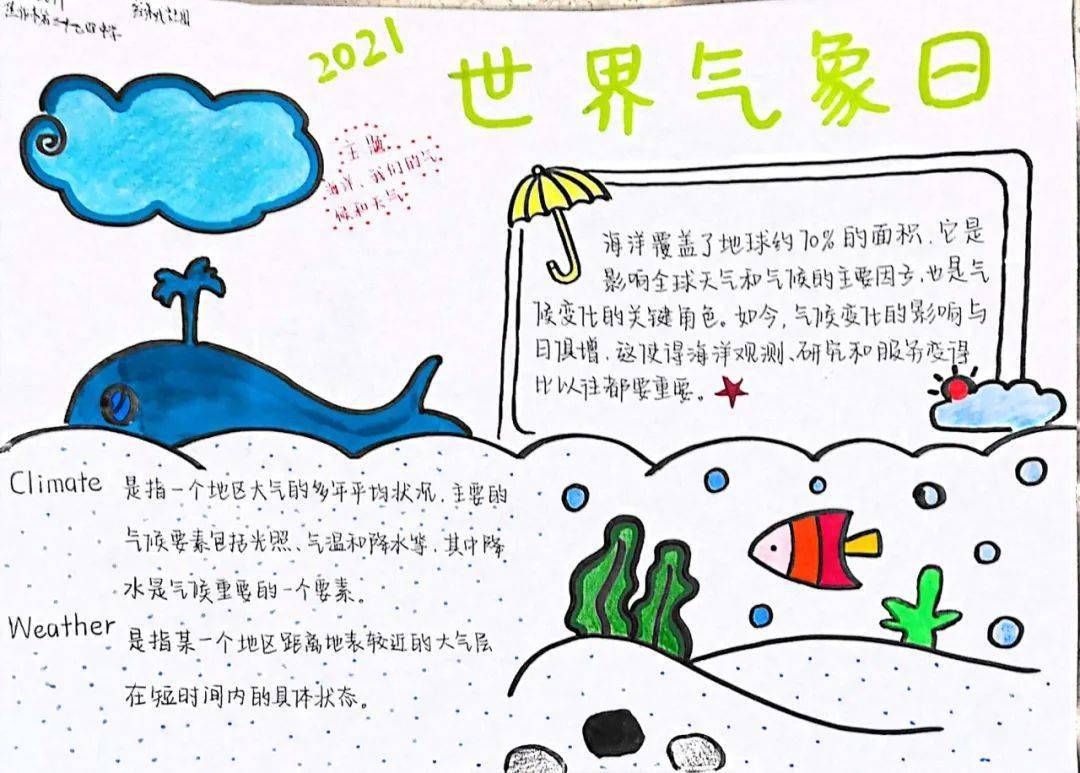 2021
世界气象日
主题
海洋、我们的气
候和天气
海洋覆盖了地球约70%的面积,它是
影响全球天气和气候的主要因子,也是气
候变化的关键角色。如今,气候变化的影响与
日俱增,这使得海洋观测、研究和服务变得
比以往都要重要。
Climate 是指一个地区大气的多年平均状况,主要的
气候要素包括光照、气温和降水等,其中降
水是气候重要的一个要素。
Weather 是指某一个地区距离地表较近的大气层
在短时间内的具体状态。